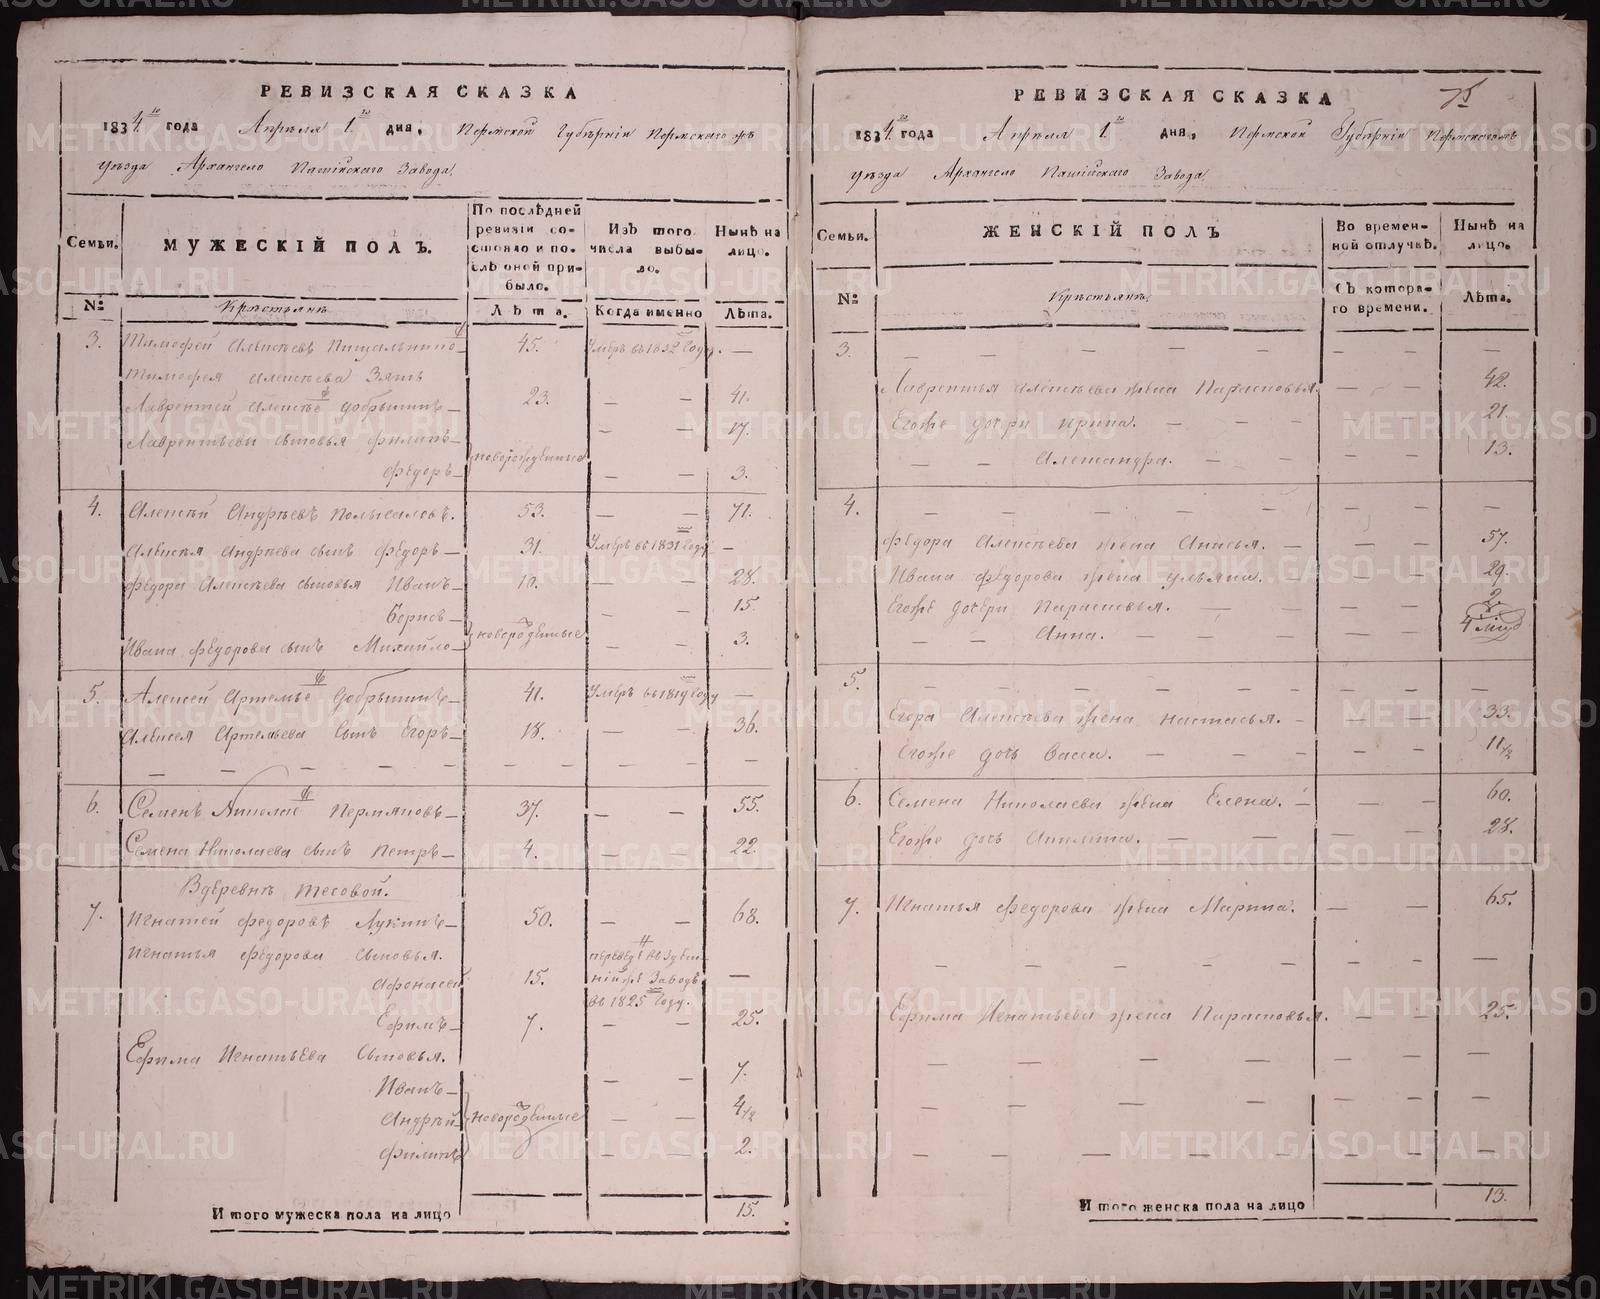 РЕВИЗСКАЯ СКАЗКА
1834го года Апреля 1го дня, Пермской Губернiи Пермскаго
уезда Архангело Пашiйскаго Завода.
Семьи.
МУЖЕСКIЙ ПОЛЪ.
По последней ревизiи состояло и после оной прибыло.
Изъ того числа выбыло.
Ныне на лицо.
№
Крестьяне
Лета.
Когда именно
Лета.
3. Тимофей Алексеевъ 45. Умеръ въ 1832 году. —
Тимофея Алексеева Зять
Лаврентей Алексеевъ Добрынинъ — 23. — — 41.
Лаврентьевы сыновья Филипъ — — — 17.
Федоръ — новорожденные — — 3.
4. Алексей Андреевъ 53. — — 71.
Алексея Андреева сынъ Федоръ — 31. Умеръ въ 1831 году —
Федора Алексеева сыновья Иванъ — 10. — — 28.
Борисъ — — — 15.
Ивана Федорова сынъ Михайло — новорожденные — — 3.
5. Алексей Артемьевъ Добрынинъ — 41. Умеръ въ 1819 году —
Алексея Артемьева Сынъ Егоръ — 18. — — 36.
— — — — — — — — — —
6. Семенъ Николаевъ Пермяковъ — 37. — — 55.
Семена Николаева сынъ Петръ — 4. — — 22.
В деревне Тесовой.
7. Игнатей Федоровъ Лукинъ — 50. — — 68.
Игнатья Федорова сыновья.
Афонасей 15. переведенъ въ
Заводъ —
въ 1825 году.
Ефимъ — 7. — — 25.
Ефима Игнатьева сыновья.
Иванъ — — — 7.
Андрей — новорожденные — — 4 1/2
Филипъ — — 2.
Итого мужеска пола на лицо 15.
РЕВИЗСКАЯ СКАЗКА
1834го года Апреля 1го дня, Пермской Губернiи Пермскаго
уезда Архангело Пашiйскаго Завода
Семьи.
ЖЕНСКIЙ ПОЛЪ
Во временной отлучке.
Ныне на лицо.
№
Крестьяне
Съ котораго времени.
Лета.
3. — — — — — — — —
Лаврентья Алексеева жена Парасковья. — — — 42.
Егоже дочери Ирина. — — — — — 21.
— — Александра. — — — — 13.
4. — — — — — — — —
Федора Алексеева жена Анисья. — — — — 57.
Ивана Федорова жена Ульяна. — — — — 29.
Егоже дочери Парасковья. — — — — — 2
— — Анна. — — — — — — 4 мец
5. — — — — — — — —
Егора Алексеева жена Настасья. — — — 33.
Егоже дочь Васса. — — — — — 11 1/2
6. Семена Николаева жена Елена. — — — 60.
Егоже дочь — — — — — 28.
7. Игнатья Федорова жена Марина. — — 65.
— — — — — — — —
Ефима Игнатьева жена Парасковья. — — 25.
— — — — — — —
— — — — — — —
— — — — — — —
Итого женска пола на лицо 13.
METRIKI.GASO-URAL.RU